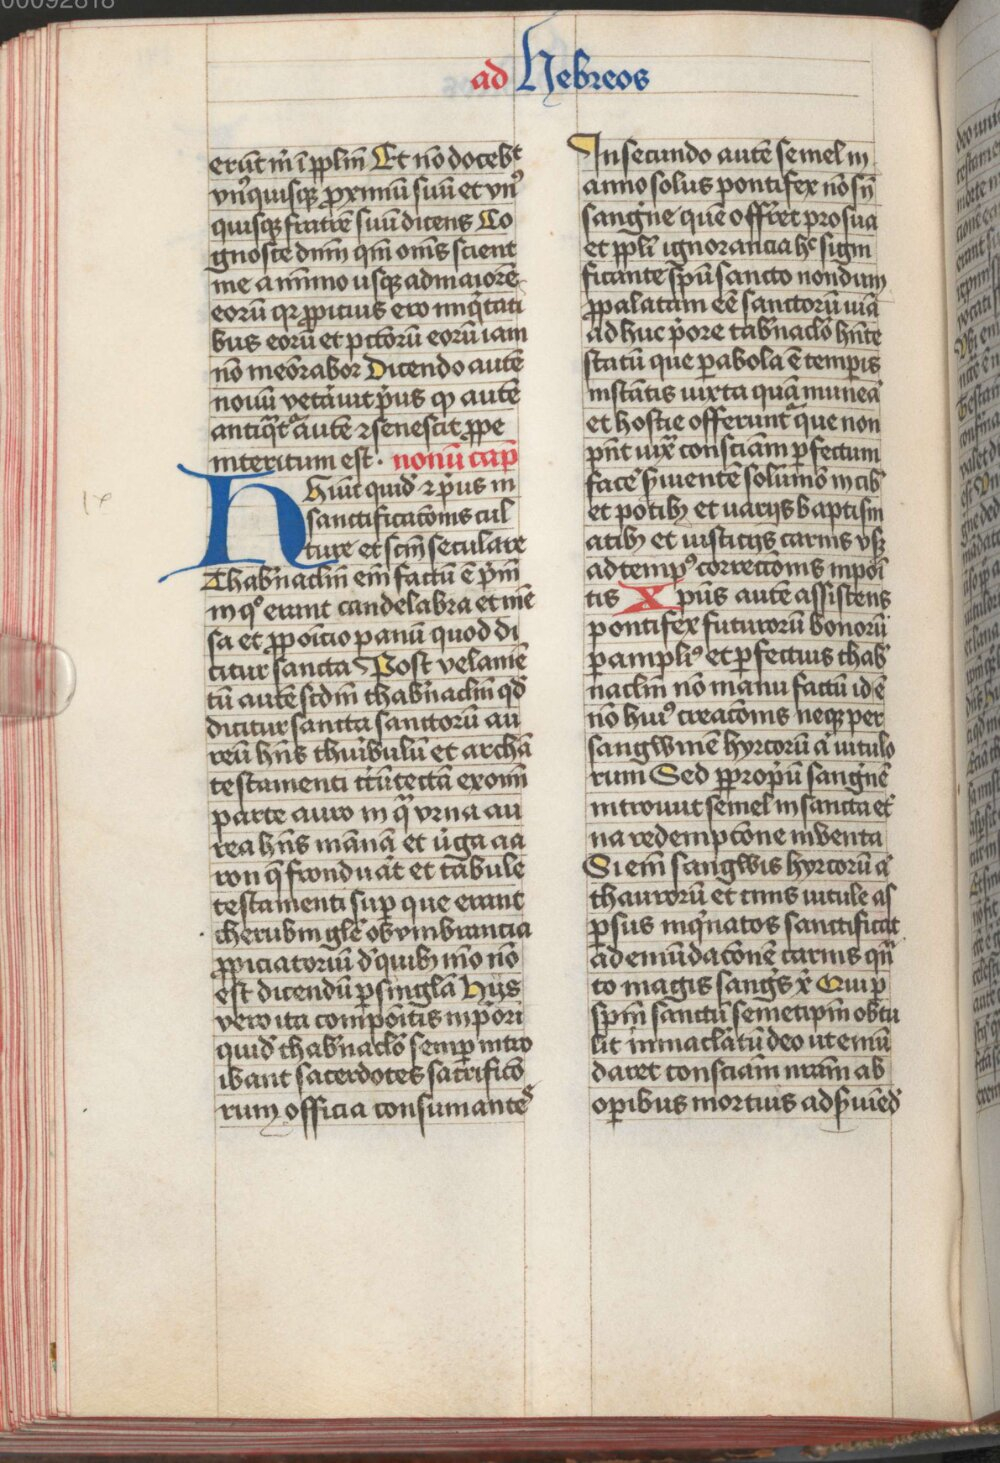 00092818
ad Hebreos
erūt m̄ i pplm̄ Et nō docebt
vn᷒quisq̃ proximū suū et vn᷒
quisq̃ fratrē suū dicens Co
gnosce dnm̄ qm̄ om̄s scient
me a minimo usq̃ ad maiorē
eorū qr ppicius ero iniq̃tati
bus eorū et pctōrū eorū iam
nō meōrabor Dicendo autē
nouū vetāuit p̄us qꝫ autē
antiq̃tᷓ autē ꝛ senescit ꝓpe
interitum est · nonū cap̄
Huit quid̄ ꝛ p̄us in
sanctificacōnis cul
ture et scm̄ seculare
Thab̄nacl̄m em̄ factū ē p̄m̄
in qͦ erant candelabra et mē
sa et ꝓpoīcio panū quod di
citur sancta Post velamē
tū autē scdm̄ thab̄nacl̄m qd̄
dicitur sancta sanctorū au
reū hn̄s thuribulū et archā
testamenti ccūtectā ex om̄i
parte auro in qᷓ vrna au
rea hn̄s mānā et ūga aa
ron q̄ fronduāt et tabule
testamenti sup̱ que erant
cherubin gl̄e obvmbrancia
ꝓpiciatoriū d̓ quibꝫ mō nō
est dicendū ꝑ singlā Hijs
vero ita compoītis in p̄ori
quid̄ thab̄naclō semp̱ intro
ibant sacerdotes sacrificō
rum officia consumantes
In secundo autē semel in
anno solus pontifex nō sn̄
sangͥne quē offr̄et pro sua
et ppl̄i ignorancia hͨ signi
ficante spū sancto nondum
ꝓpalatam eē sanctorū uiā
ad huc p̄ore tab̄naclō hn̄te
statū que ꝑabola ē tempis
instātis iuxta quā munea
et hostie offeruntᷓ que non
pn̄t iux̄ consciam ꝑfectum
facē s̄uientē solūmō in cib̄
et potibꝫ et uarijs baptism̄
atibꝫ et iusticijs carnis vsq̃
ad temp᷒ correccōnis inpoī
tis Xpūs autē assistens
pontifex futurorū bonorū
ꝑ ampli᷒ et ꝑfectius thab̄
nacl̄m nō manu factū id ē
nō hui᷒ creacōnis neq̃ per
sangwinē hyrcorū a̓ uitulo
rum Sed ꝑ propͥū sangͥnē
introiuit semel in sancta et̓
na redempcōne inventa
Si em̄ sangwis hyrcorū a̓
thaurorū et cinis uitule as
ꝑsus inqͥnatos sanctificat
ad emūdacōnē carnis qn̄
to magis sangͥs xͥ Qui ꝑ
spm̄ sanctū semetipm̄ obtu
lit inmaclātū deo ut emū
daret consciam nr̄am ab
oꝑibus mortuis ad s̄uiēd̄